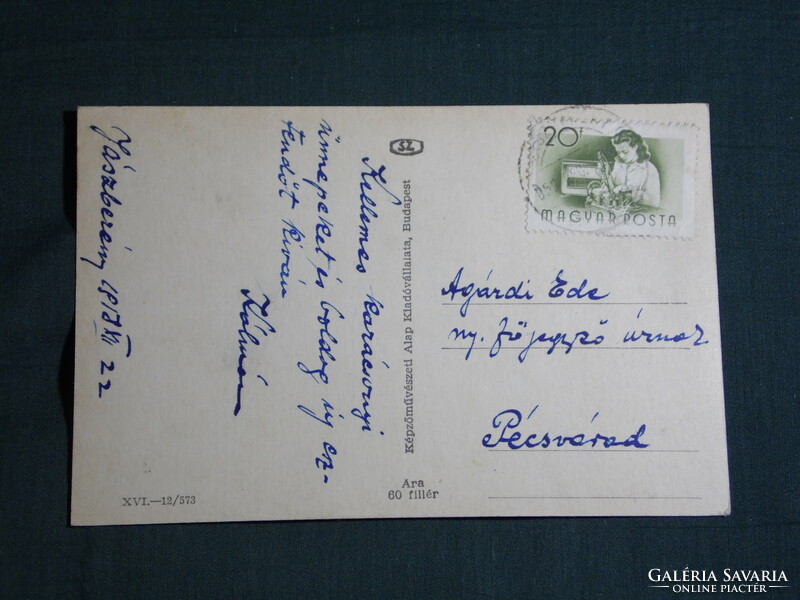 Kellemes karácsonyi
ünnepeket és boldog új esz-
tendőt kiván
Kálmán
Jászberény 1957 XII 22
SZ
Képzőművészeti Alap Kiadóvállalata, Budapest
20f
MAGYAR POSTA
Agárdi Ede
ny. főjegyző úrnak
Pécsvárad
Ára
60 fillér
XVI.—12/573
GALÉRIA SAVARIA
ONLINE PIACTÉR